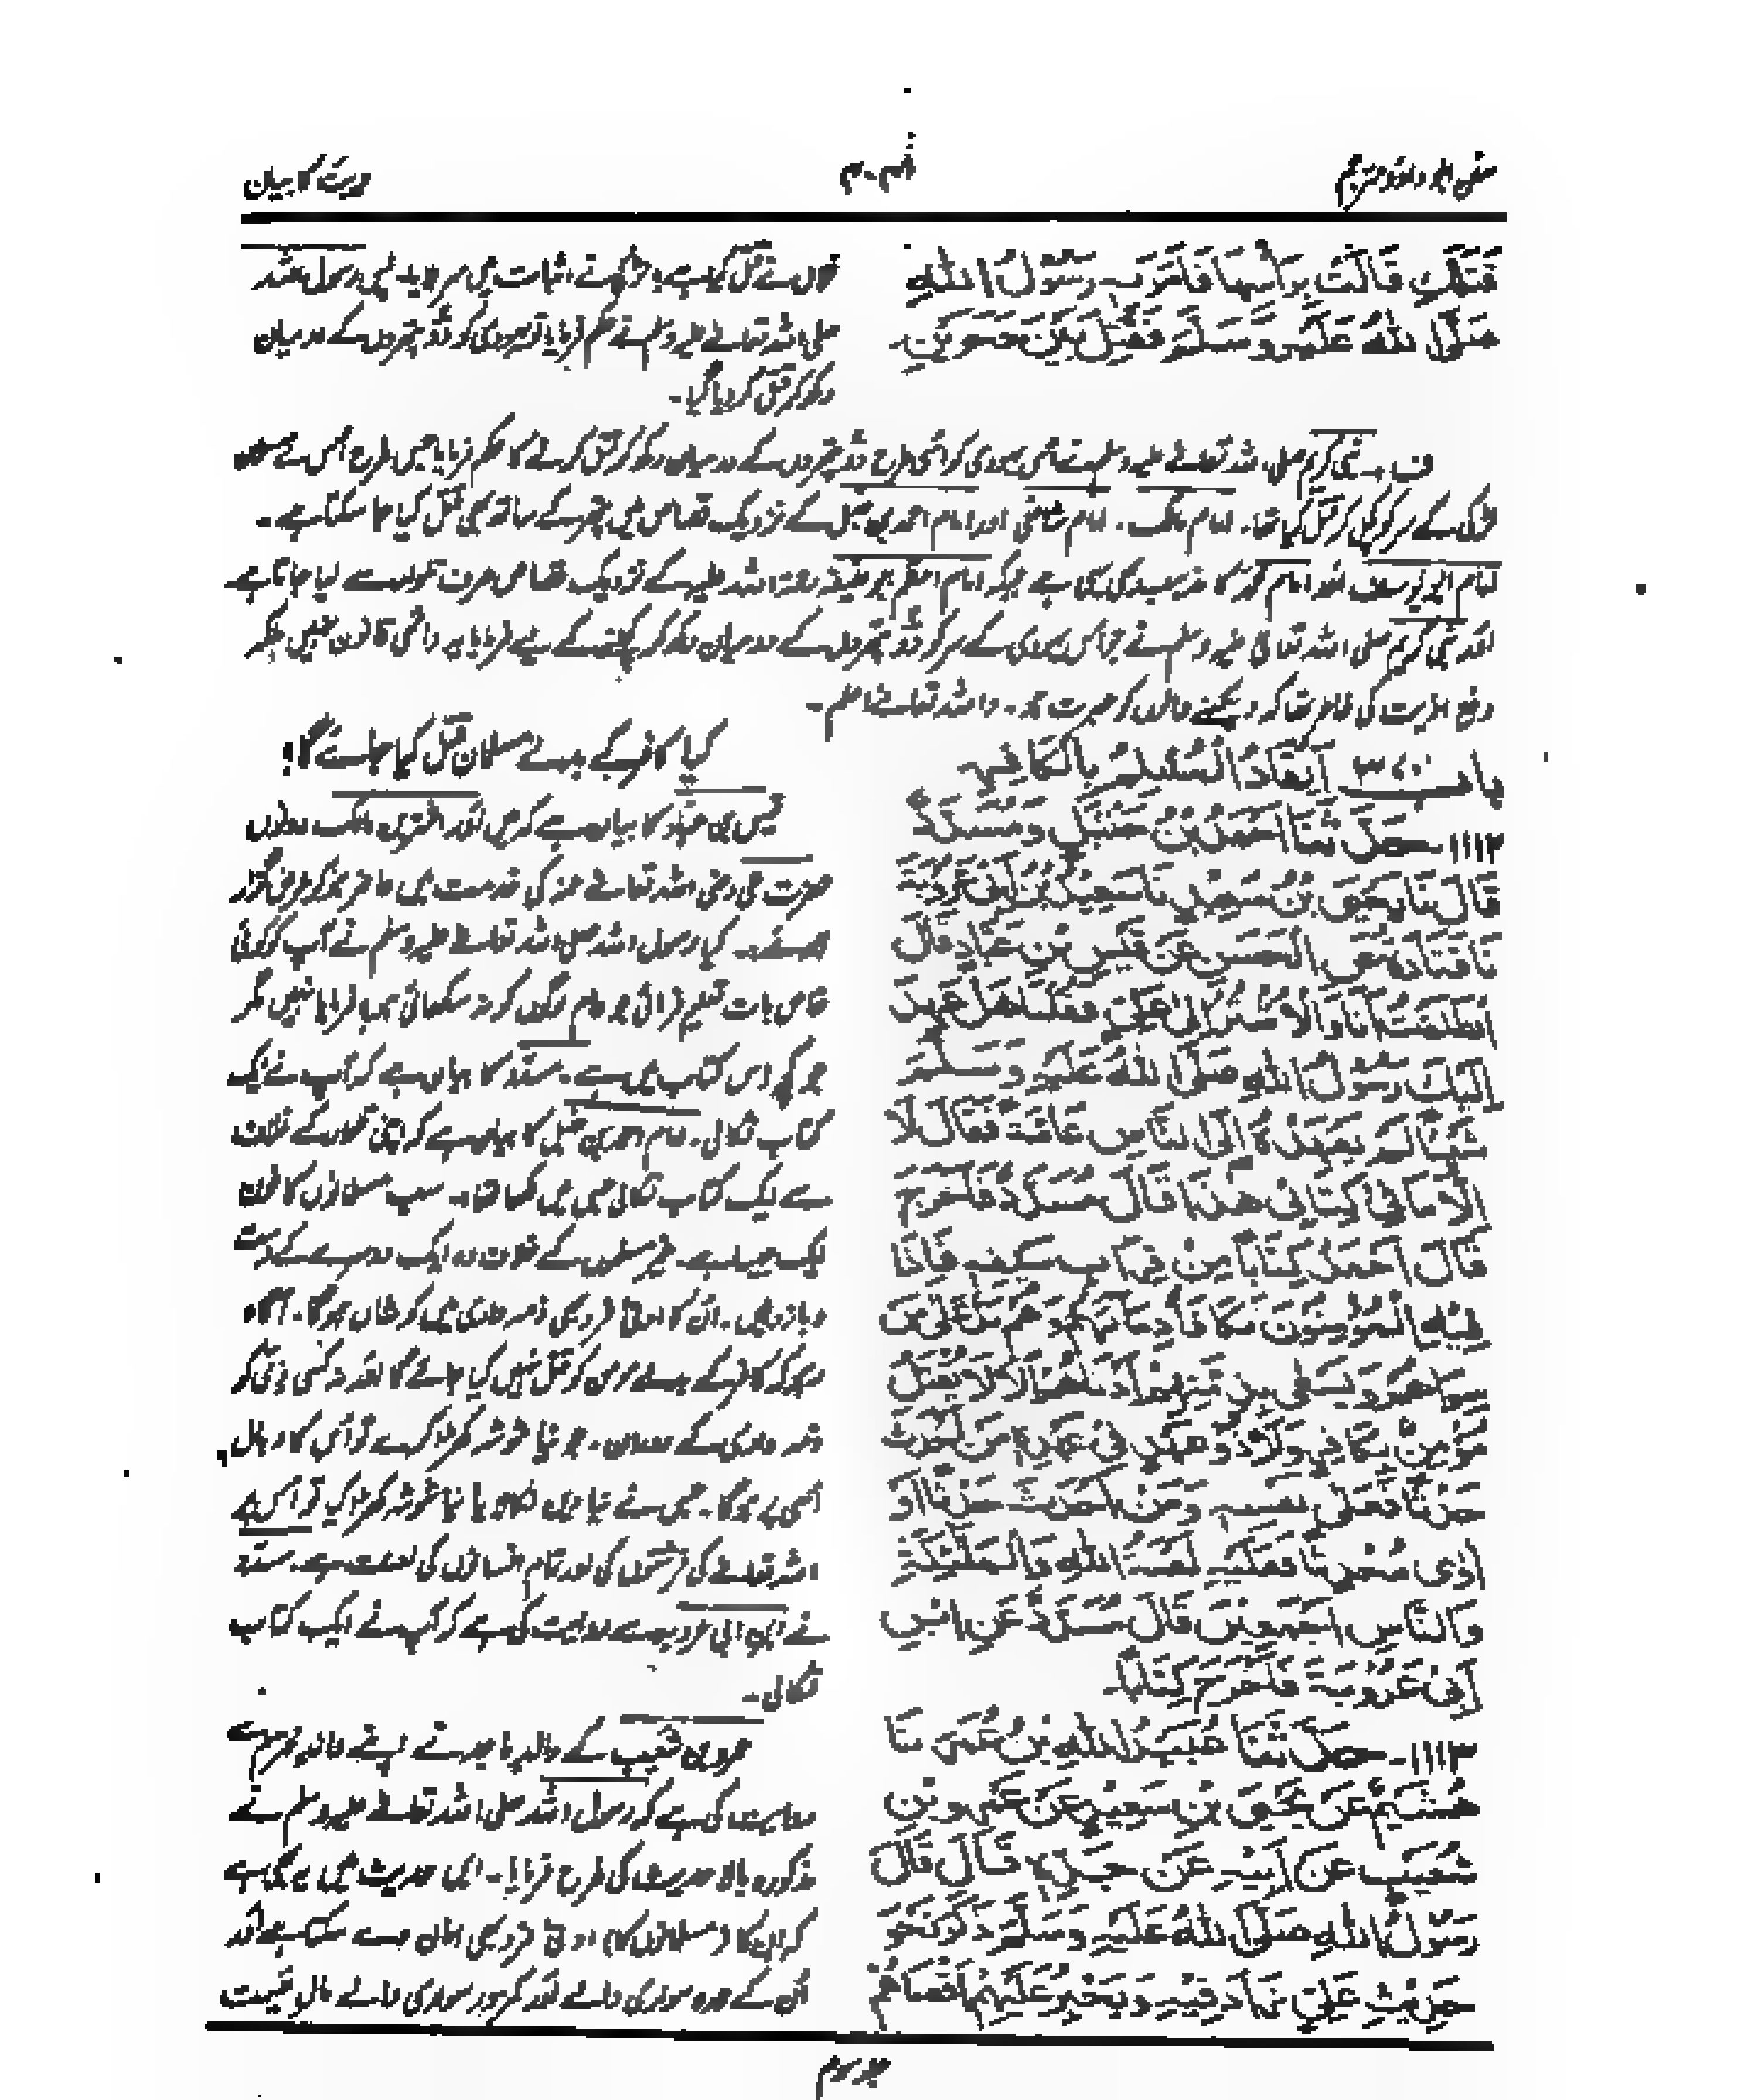 سنن ابو داؤد مترجم
دیت کا بیان
قَتَلَكِ قَالَتْ بِرَأْسِهَا فَأَمَرَ بِهِ رَسُوْلُ اللهِ
صَلَّى اللهُ عَلَيْهِ وَسَلَّمَ فَقُتِلَ بَيْنَ حَجَرَيْنِ۔
فلاں نے قتل کیا ہے؟ لڑکی نے اثبات میں سر ہلایا۔ پس رسول اللہ
صلی اللہ تعالیٰ علیہ وسلم نے حکم فرمایا تو یہودی کو دو پتھروں کے درمیان
رکھ کر قتل کر دیا گیا۔
ف:۔ نبی کریم صلی اللہ تعالیٰ علیہ وسلم نے یہودی کو اسی طرح دو پتھروں کے درمیان رکھ کر قتل کرنے کا حکم فرمایا جس طرح اس نے
لڑکی کے سر کو کچل کر قتل کیا تھا۔ امام مالک، امام شافعی اور امام احمد بن حنبل کے نزدیک قصاص میں پتھر کے ساتھ بھی قتل کیا جا سکتا ہے۔
امام ابو یوسف اور امام محمد کا مذہب بھی یہی ہے جبکہ امام اعظم ابو حنیفہ رحمۃ اللہ علیہ کے نزدیک قصاص صرف تلوار سے لیا جاتا ہے
اور نبی کریم صلی اللہ تعالیٰ علیہ وسلم نے جو اس یہودی کے سر کو دو پتھروں کے درمیان رکھ کر کچلنے کے لیے فرمایا یہ دائمی قانون نہیں بلکہ
کی خاطر تھا کہ دیکھنے والوں کو عبرت ہو۔ واللہ تعالیٰ اعلم۔
باب أَيُقَادُ الْمُسْلِمُ بِالْكَافِرِ
کیا کافر کے بدلے مسلمان قتل کیا جائے گا؟
۱۱۱۲۔ حَدَّثَنَا أَحْمَدُ بْنُ حَنْبَلٍ وَمُسَدَّدٌ
قَالَ نَا يَحْيَى بْنُ سَعِيْدٍ نَا سَعِيْدُ بْنُ أَبِيْ عَرُوْبَةَ
نَا قَتَادَةُ عَنِ الْحَسَنِ عَنْ قَيْسِ بْنِ عَبَّادٍ قَالَ
انْطَلَقْتُ أَنَا وَالْأَشْتَرُ إِلٰى عَلِيٍّ فَقُلْنَا هَلْ عَهِدَ
إِلَيْكَ رَسُوْلُ اللهِ صَلَّى اللهُ عَلَيْهِ وَسَلَّمَ
شَيْئًا لَمْ يَعْهَدْهُ إِلَى النَّاسِ عَامَّةً فَقَالَ لَا
إِلَّا مَا فِيْ كِتَابِيْ هٰذَا قَالَ مُسَدَّدٌ فَأَخْرَجَ
قَالَ أَحْمَدُ كِتَابًا مِنْ قِرَابِ سَيْفِهِ فَإِذَا
فِيْهِ الْمُؤْمِنُوْنَ تَكَافَأُ دِمَاؤُهُمْ وَهُمْ يَدٌ عَلٰى مَنْ
سِوَاهُمْ وَيَسْعٰى بِذِمَّتِهِمْ أَدْنَاهُمْ أَلَا لَا يُقْتَلُ
مُؤْمِنٌ بِكَافِرٍ وَلَا ذُوْ عَهْدٍ فِيْ عَهْدِهِ مَنْ أَحْدَثَ
حَدَثًا فَعَلٰى نَفْسِهِ وَمَنْ أَحْدَثَ حَدَثًا أَوْ
اٰوٰى مُحْدِثًا فَعَلَيْهِ لَعْنَةُ اللهِ وَالْمَلٰئِكَةِ
وَالنَّاسِ أَجْمَعِيْنَ قَالَ مُسَدَّدٌ عَنِ ابْنِ
أَبِيْ عَرُوْبَةَ فَأَخْرَجَ كِتَابًا۔
قیس بن عباد کا بیان ہے کہ میں اور اشتر بن مالک دونوں
حضرت علی رضی اللہ تعالیٰ عنہ کی خدمت میں حاضر ہو کر عرض گزار
ہوئے:۔ کیا رسول اللہ صلی اللہ تعالیٰ علیہ وسلم نے آپ کو کوئی
خاص بات تعلیم فرمائی جو عام لوگوں کو نہ سکھائی ہو؟ فرمایا نہیں مگر
جو کچھ اس کتاب میں ہے۔ مسدد کا بیان ہے کہ آپ نے ایک
کتاب نکالی۔ امام احمد بن حنبل کا بیان ہے کہ اپنی تلوار کے غلاف
سے ایک کتاب نکالی جس میں لکھا تھا۔ سب مسلمانوں کا خون
ایک جیسا ہے۔ غیر مسلموں کے خلاف وہ ایک دوسرے کے دست
و بازو ہیں۔ ان کا ادنیٰ فرد بھی ذمہ داری میں کوشاں ہو گا۔ آگاہ
رہو کہ کافر کے بدلے مومن کو قتل نہیں کیا جائے گا اور نہ کسی ذمی کو
ذمہ داری کے دوران۔ جو نیا شوشہ کھڑا کرے تو اس کا وبال
اسی پر ہو گا۔ جس نے نیا دین نکالا یا نیا شوشہ کھڑا کیا تو اس پر
اللہ تعالیٰ کی فرشتوں کی اور تمام انسانوں کی لعنت ہے۔ مسدد
نے ابن ابی عروبہ سے روایت کی ہے کہ آپ نے ایک کتاب
نکالی۔
۱۱۱۳۔ حَدَّثَنَا عُبَيْدُ اللهِ بْنُ عُمَرَ نَا
هُشَيْمٌ عَنْ يَحْيَى بْنِ سَعِيْدٍ عَنْ عَمْرِو بْنِ
شُعَيْبٍ عَنْ أَبِيْهِ عَنْ جَدِّهِ قَالَ قَالَ
رَسُوْلُ اللهِ صَلَّى اللهُ عَلَيْهِ وَسَلَّمَ ذَكَرَ نَحْوَ
حَدِيْثِ عَلِيٍّ زَادَ فِيْهِ وَيُجِيْرُ عَلَيْهِمْ أَقْصَاهُمْ
عمرو بن شعیب کے والد ماجد نے اپنے والد محترم سے
روایت کی ہے کہ رسول اللہ صلی اللہ تعالیٰ علیہ وسلم نے
مذکورہ بالا حدیث کی طرح فرمایا۔ اس حدیث میں یہ بھی ہے
کہ ان کا مسلمانوں کا ادنیٰ فرد بھی امان دے سکتا ہے اور
ان کے عمدہ سواری والے اور کمزور سواری والے مال غنیمت
جلد سوم